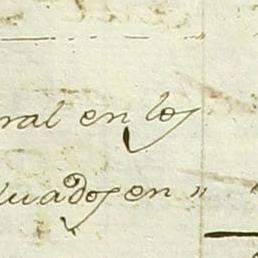 ral en los
luados en "